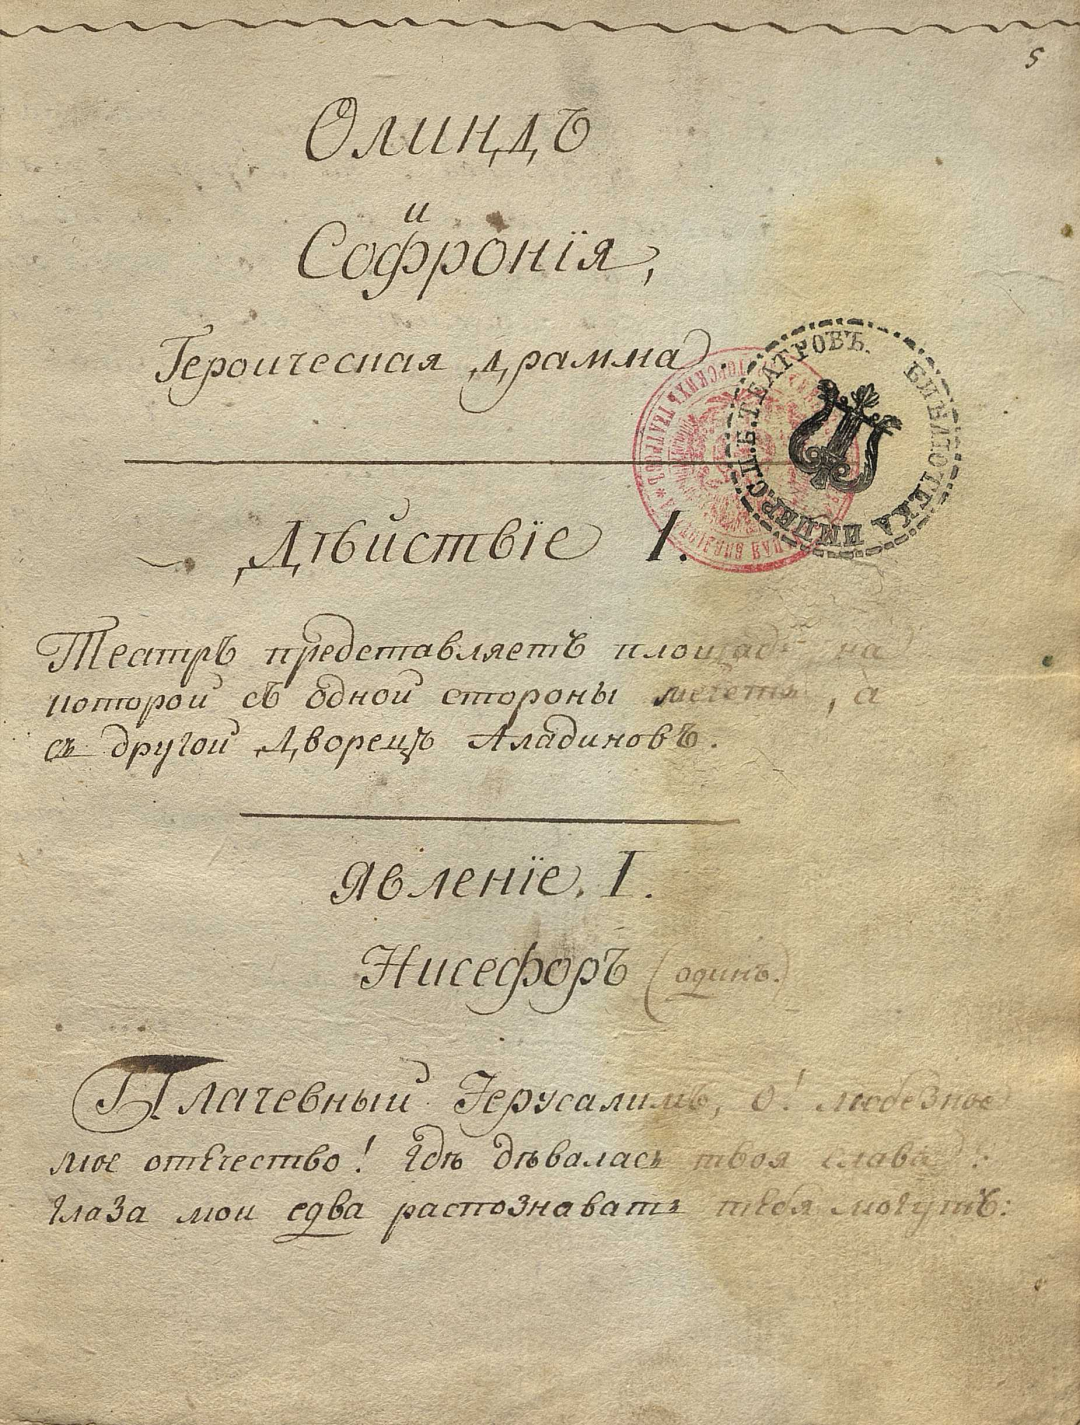 5
Олиндъ
и
Софронія,
Героическая драмма
БИБЛІОТЕКА ИМПЕР. С.П.Б. ТЕАТРОВЪ.
Дѣйствіе 1.
Театръ представляетъ площадь, на
которой съ одной стороны мечеть, а
съ другой Дворецъ Аладиновъ.
Явленіе. I.
Нисефоръ (одинъ.)
Плачевный Іерусалимъ, О! любезное
мое отечество! гдѣ дѣвалась твоя слава?:
глаза мои едва распознавать тебя могутъ: